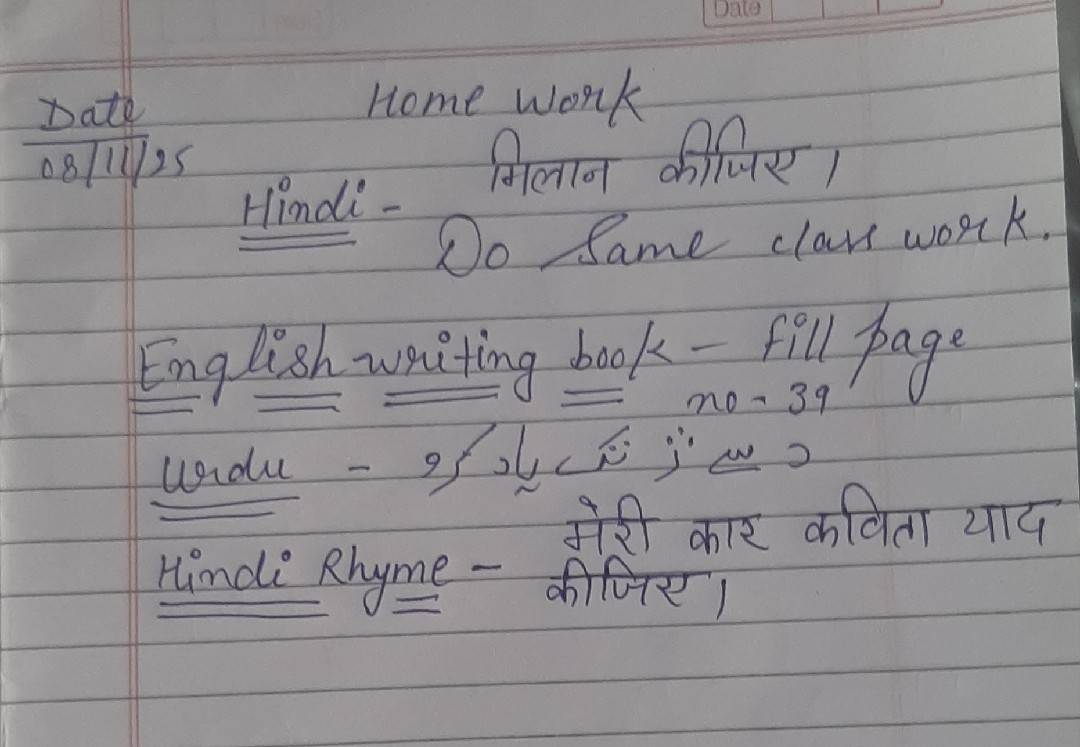 Date
Date
08/11/25
Home Work
Hindi - मिलान कीजिए।
Do Same class work.
English writing book - fill page
no - 39
Urdu - د سے ژ تک یاد کرو
Hindi Rhyme - मेरी कार कविता याद
कीजिए।